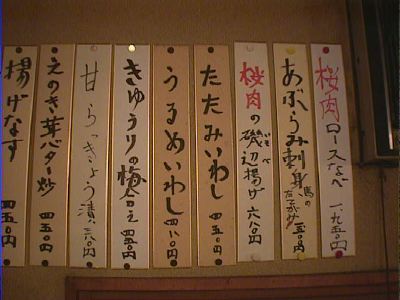 桜肉ロースなべ 一、九五〇円
あぶらみ刺身 馬のたてがみ 一、五〇円
桜肉の磯辺揚げ 六八〇円
たたみいわし 四五〇円
うるめいわし 四八〇円
きゅうりの梅合え 四五〇円
甘らっきょう漬 三八〇円
えのき茸バター炒 四五〇円
揚げなす 四五〇円